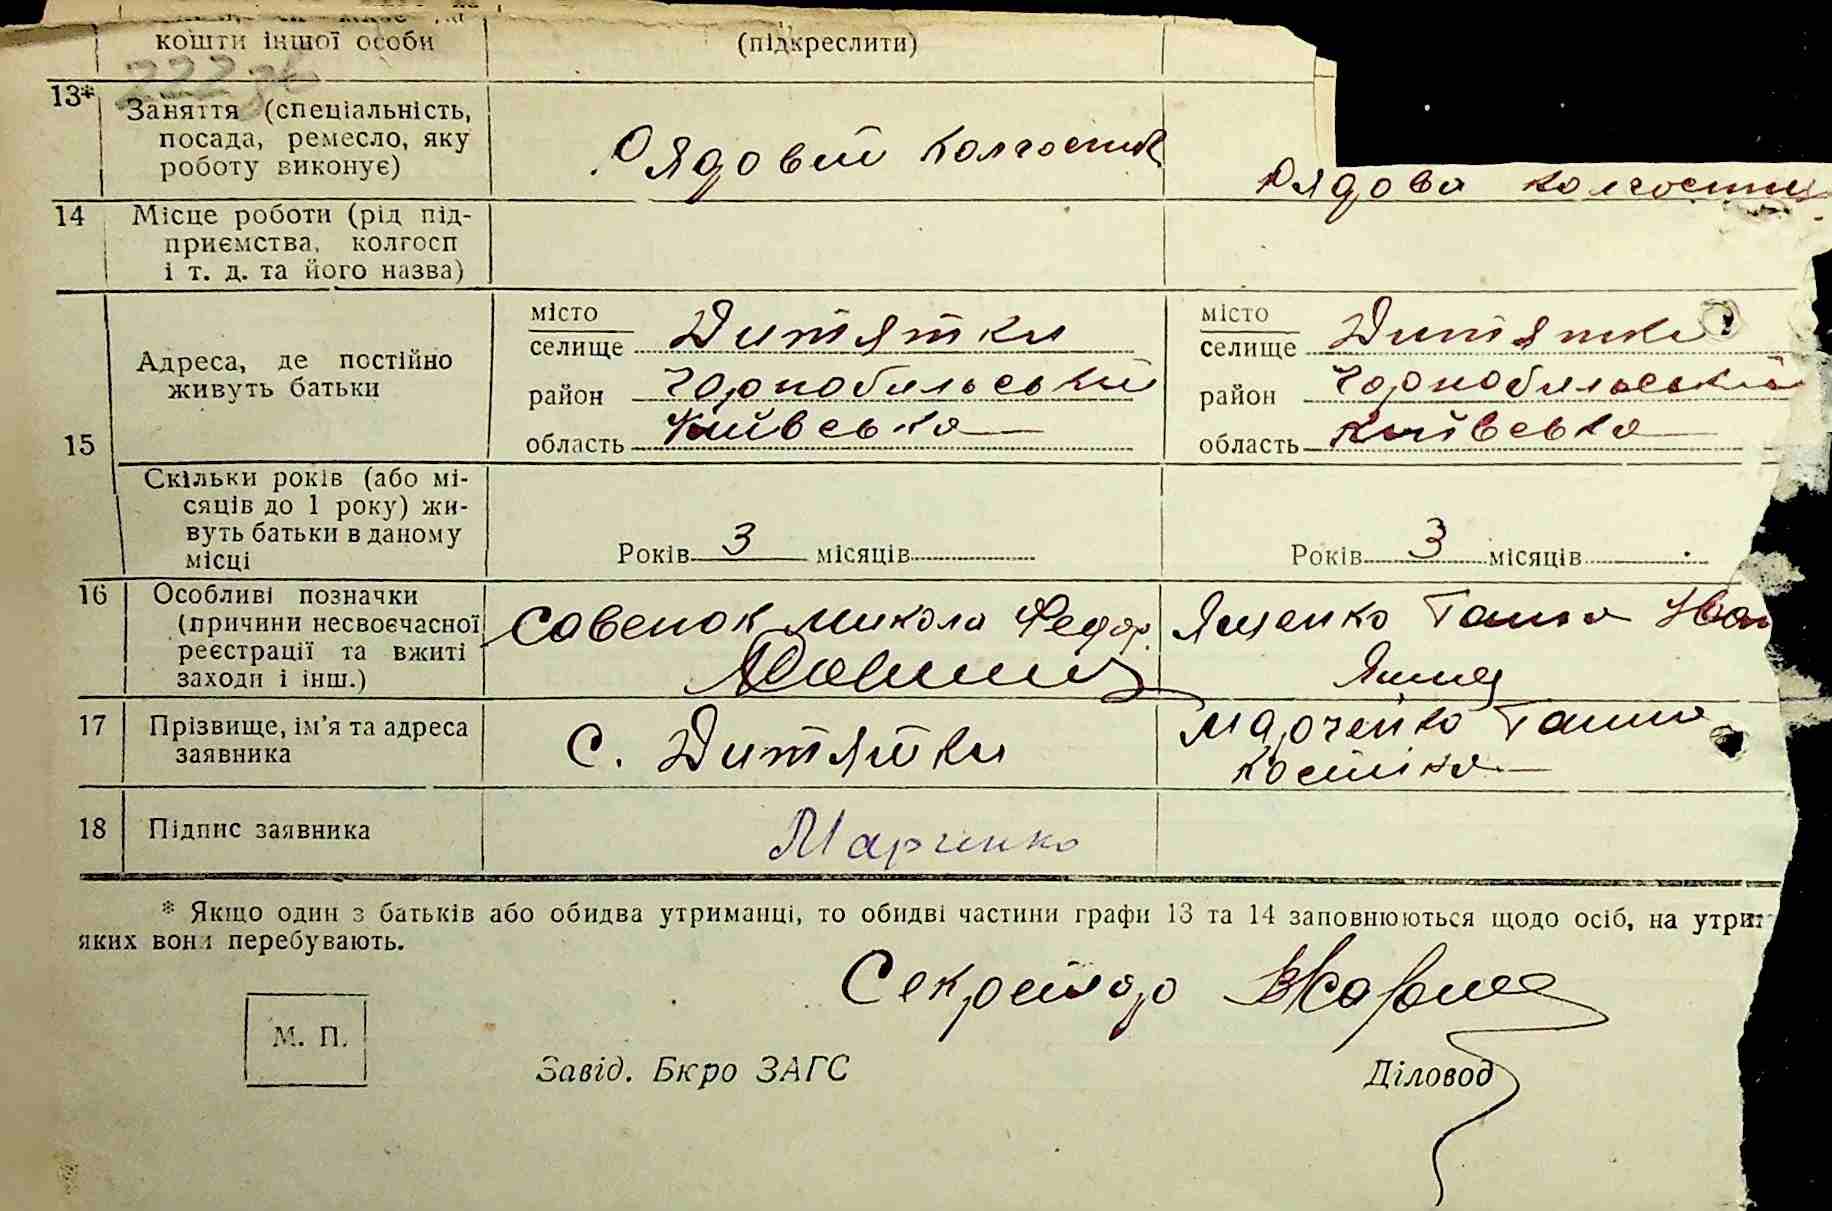 кошти іншої особи
(підкреслити)
13*
Заняття (спеціальність,
посада, ремесло, яку
роботу виконує)
Рядовий колгоспник
Рядова колгоспниц
14
Місце роботи (рід під-
приємства, колгосп
і т. д. та його назва)
15
Адреса, де постійно
живуть батьки
місто
селище Дитятки
район Чорнобильський
область Київська
місто
селище Дитятки
район Чорнобильський
область Київська
Скільки років (або мі-
сяців до 1 року) жи-
вуть батьки в даному
місці
Років 3 місяців
Років 3 місяців
16
Особливі позначки
(причини несвоєчасної
реєстрації та вжиті
заходи і інш.)
Савенок Микола Федор.
Ященко Ганна Іван
Ящен
17
Прізвище, ім'я та адреса
заявника
с. Дитятки
Марченко Ганна
Костівна
18
Підпис заявника
Марченко
* Якщо один з батьків або обидва утриманці, то обидві частини графи 13 та 14 заповнюються щодо осіб, на утрим
яких вони перебувають.
Секретар
М. П.
Завід. Бюро ЗАГС
Діловод